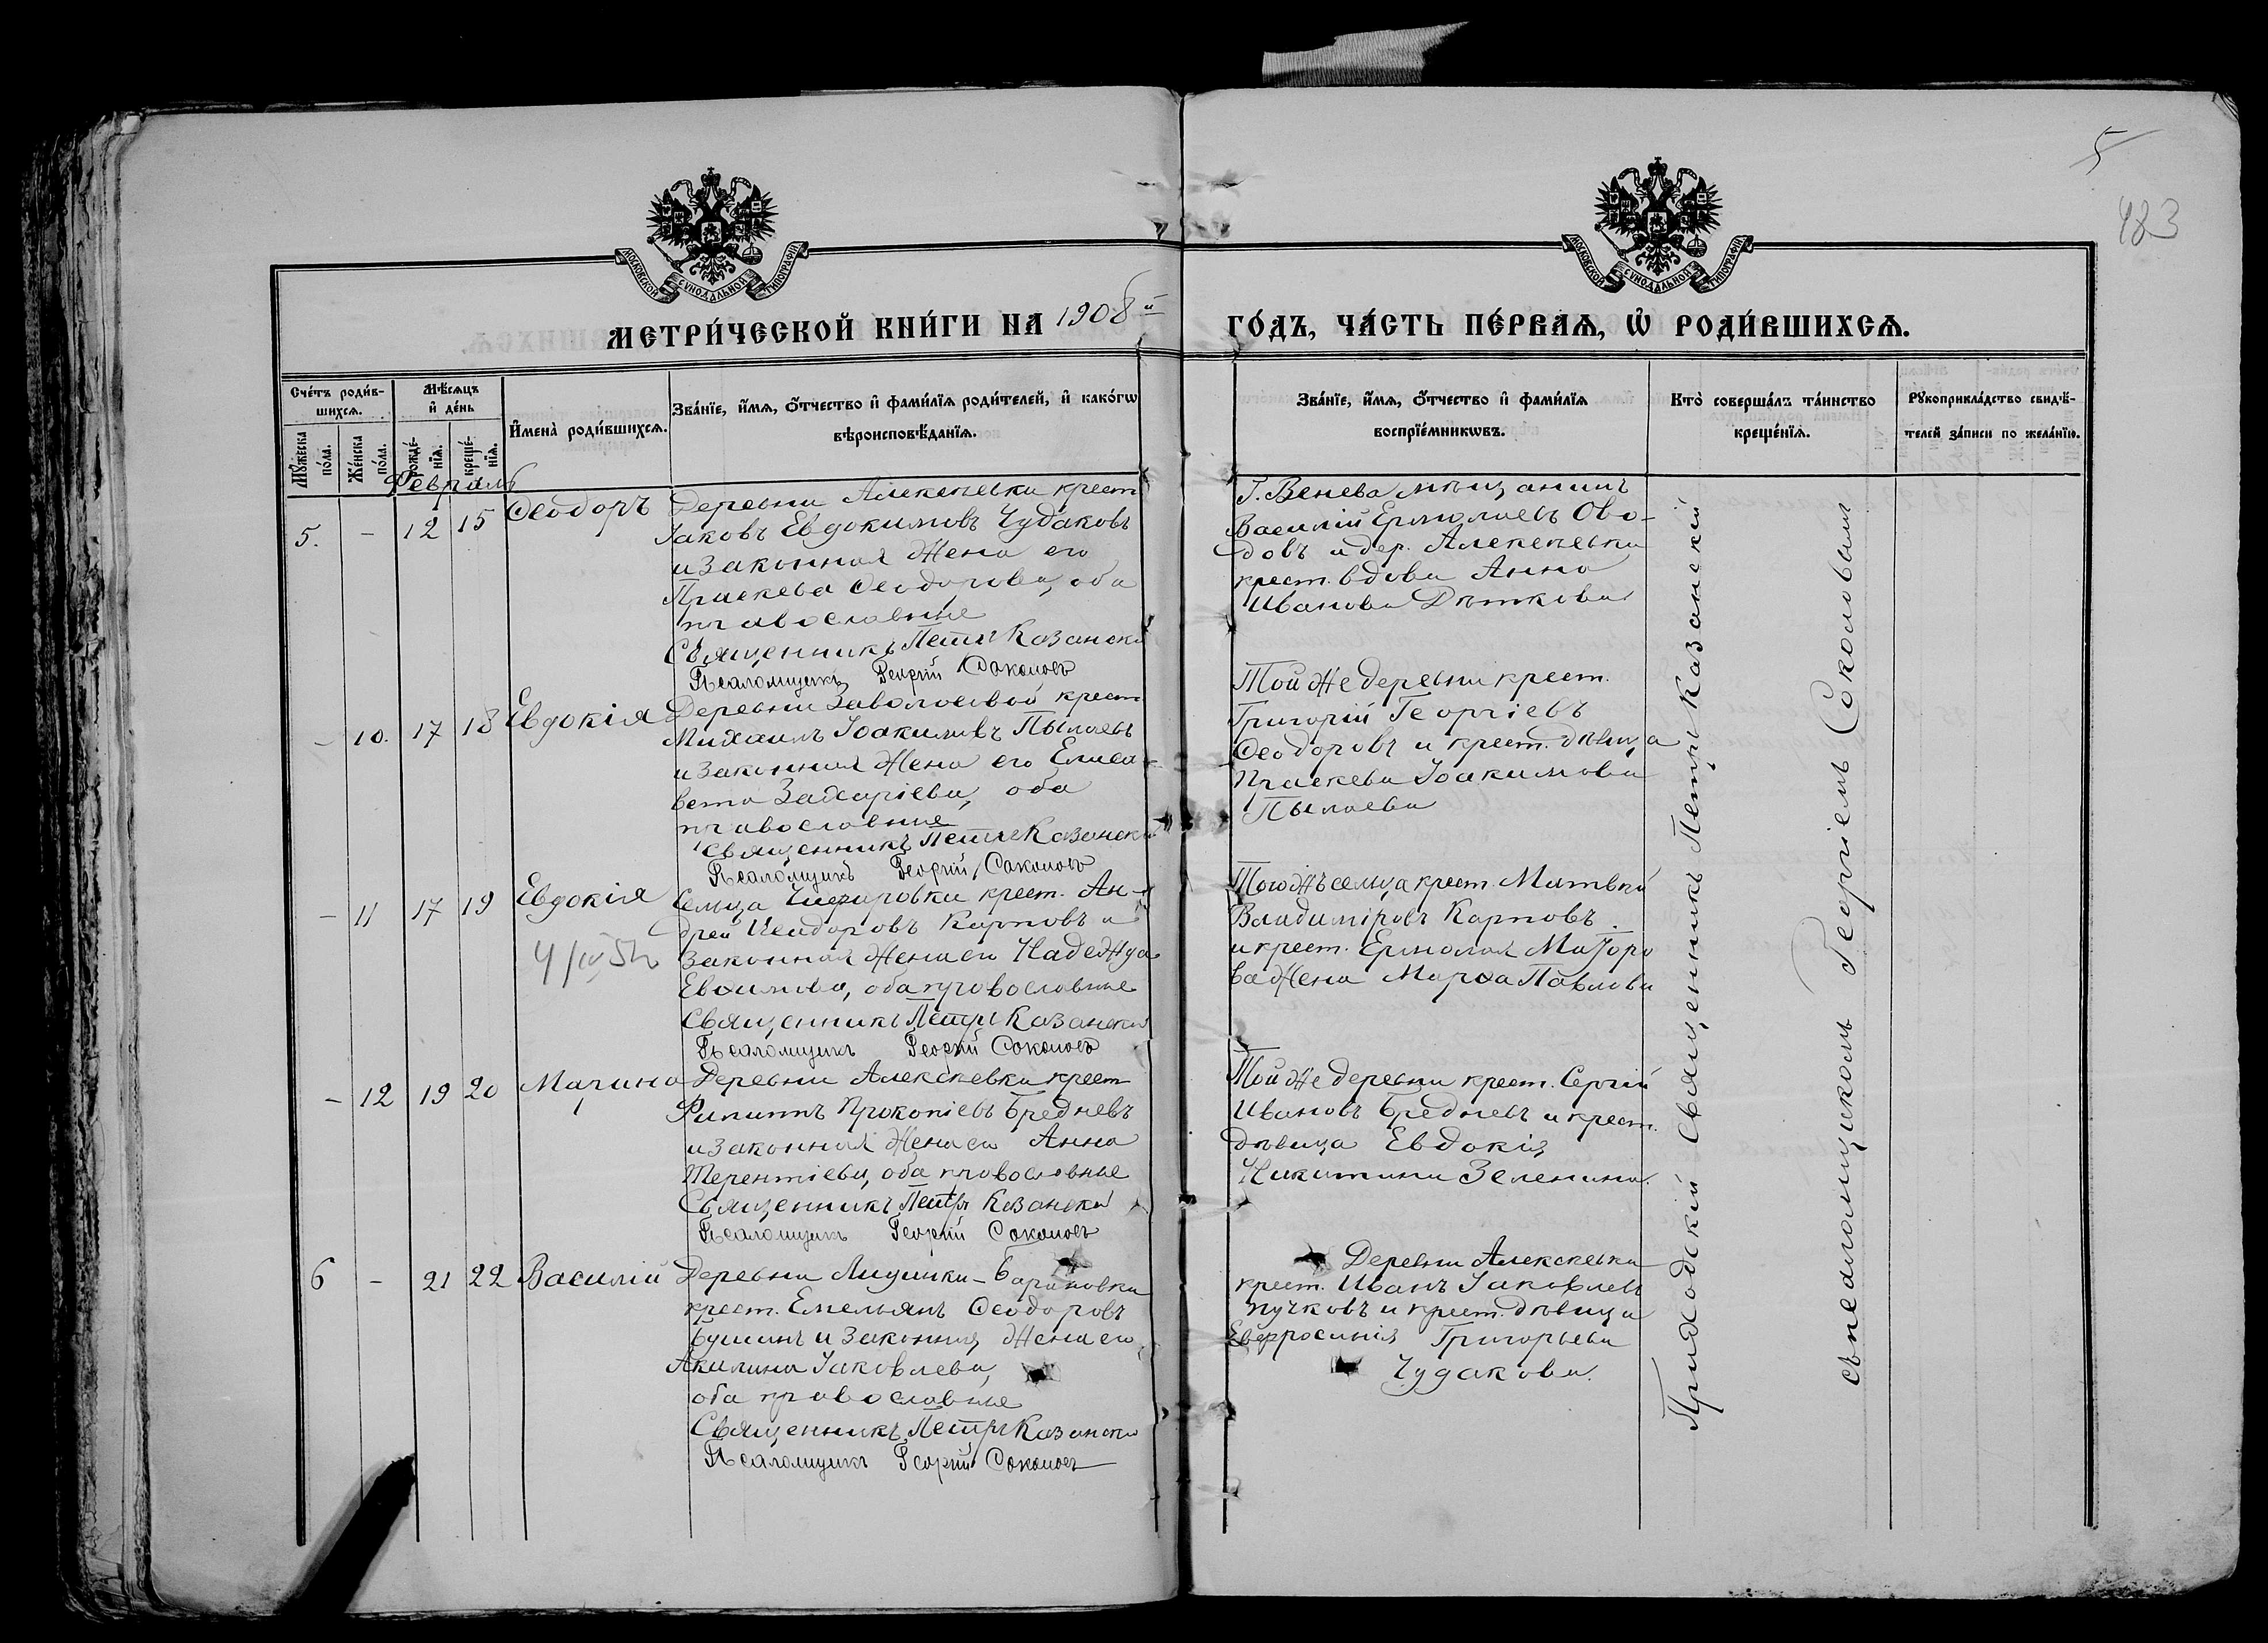 5
483
МОСКОВСКОЙ СѴНОДАЛЬНОЙ ТИПОГРАФІИ
МОСКОВСКОЙ СѴНОДАЛЬНОЙ ТИПОГРАФІИ
МЕТРИ́ЧЕСКОЙ КНИ́ГИ НА 1908й
ГО́ДЪ, ЧА́СТЬ ПЕ́РВАѦ, Ѡ҆ РОДИ́ВШИХСѦ.
Сче́тъ роди́в-
шихсѧ.
Мꙋ́жеска по́ла.
Же́нска по́ла.
Мѣ́сѧцъ
и҆ де́нь
рожде́-
нїѧ.
креще́-
нїѧ.
И҆мена̀ роди́вшихсѧ.
Зва́нїе, и҆́мѧ, ѻ҆́тчество и҆ фами́лїѧ роди́телей, и҆ како́гѡ
вѣроисповѣ́данїѧ.
Зва́нїе, и҆́мѧ, ѻ҆́тчество и҆ фами́лїѧ
воспрїе́мникѡвъ.
Кто̀ соверша́лъ та́инство
креще́нїѧ.
Рꙋкоприкла́дство свидѣ́-
телей за́писи по жела́нїю.
Февраль
5. - 12 15 Ѳеодоръ
Деревни Алексеевки крест
Іаковъ Евдокимовъ Чудаковъ
и законная жена его
Праскева Ѳеодорова, оба
православные
Священникъ Петръ Казански
Псаломщикъ Георгій Соколовъ
Г. Венева мѣщанинъ
Василій Ермолаевъ Ово-
довъ и дер. Алексеевки
крест. вдова Анна
Иванова Дѣткова
- 10. 17 18 Евдокія
Деревни крест
Михаилъ Іоакимовъ Пылаевъ
и законная жена его Елиса-
вета Захаріева, оба
православные
Священникъ Петръ Казански
Псаломщикъ Георгій Соколовъ
Той же деревни крест.
Григорій Георгіевъ
Ѳеодоровъ и крест. дѣвица
Праскева Іоакимова
Пылаева
- 11 17 19 Евдокія
Сельца крест. Ан-
дрей Ѳеодоровъ Карповъ и
законная жена его Надежда
Евѳимова, оба православные
Священникъ Петръ Казански
Псаломщикъ Георгій Соколовъ
Того жъ сельца крест. Матвѣй
Владиміровъ Карповъ
и крест. Ермолая Маіоро
ва жена Марѳа Павлова
- 12 19 20 Марина
Деревни Алексеевки крест
Филиппъ Прокопіевъ Бредневъ
и законная жена его Анна
Терентіева, оба православные
Священникъ Петръ Казански
Псаломщикъ Георгій Соколовъ
Той же деревни крест. Сергій
Ивановъ Бредневъ и крест.
дѣвица Евдокія
Никитина Зеленина.
6 - 21 22 Василій
Деревни Бариновки
крест. Емельянъ Ѳеодоровъ
Бушинъ и законная жена его
Акилина Іаковлева,
оба православные
Священникъ Петръ Казански
Псаломщикъ Георгій Соколовъ
Деревни Алексеевки
крест. Иванъ Іаковлевъ
Пучковъ и крест. дѣвица
Евфросинія Григорьева
Чудакова.
Приходскій Священникъ Петръ Казанскій
съ псаломщикомъ Георгіемъ Соколовымъ